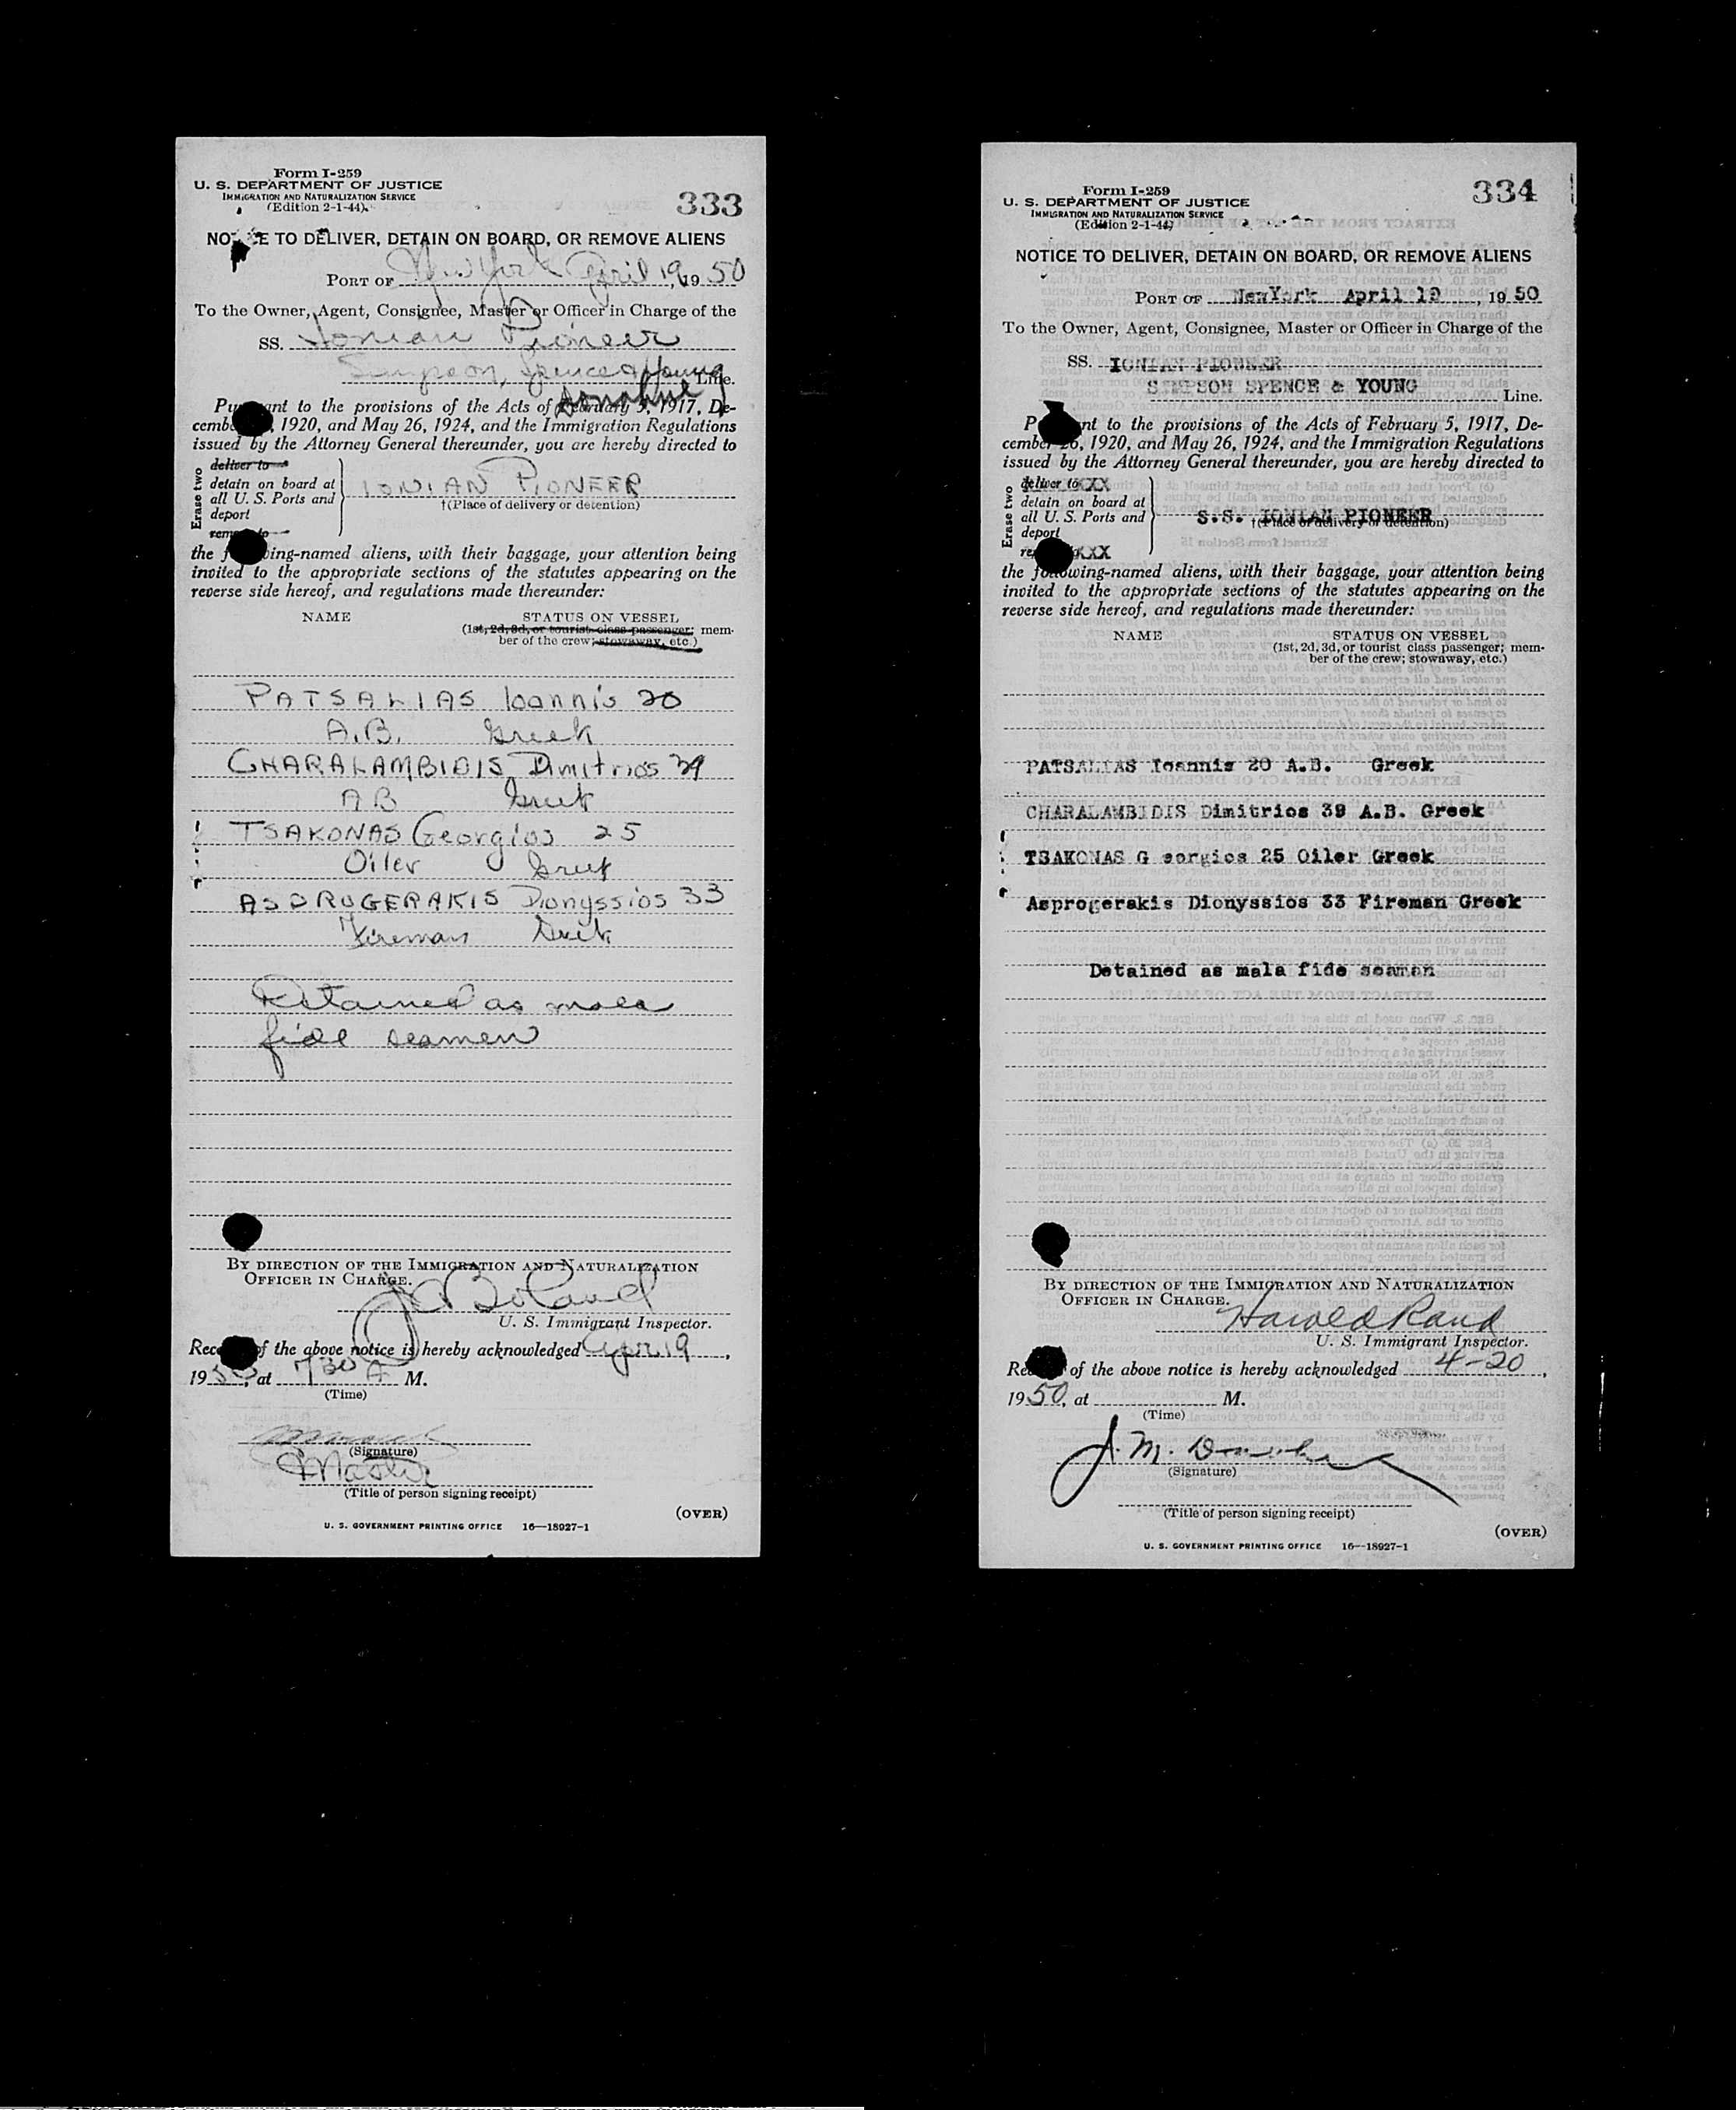 Form I-259
U. S. DEPARTMENT OF JUSTICE
IMMIGRATION AND NATURALIZATION SERVICE
(Edition 2-1-44)
333
NOTICE TO DELIVER, DETAIN ON BOARD, OR REMOVE ALIENS
PORT OF New York April 19, 1950
To the Owner, Agent, Consignee, Master or Officer in Charge of the
SS. Ionian Pioneer
Simpson, Spence & Young Line.
Donahue
Pursuant to the provisions of the Acts of February 5, 1917, De-
cember 26, 1920, and May 26, 1924, and the Immigration Regulations
issued by the Attorney General thereunder, you are hereby directed to
Erase two
deliver to
detain on board at
all U. S. Ports and
deport
remove to
IONIAN PIONEER
†(Place of delivery or detention)
the following-named aliens, with their baggage, your attention being
invited to the appropriate sections of the statutes appearing on the
reverse side hereof, and regulations made thereunder:
NAME STATUS ON VESSEL
(1st, 2d, 3d, or tourist class passenger; mem-
ber of the crew; stowaway, etc.)
PATSALIAS Ioannis 20
A.B. Greek
CHARALAMBIDIS Dimitrios 39
AB Greek
TSAKONAS Georgios 25
Oiler Greek
ASPROGERAKIS Dionyssios 33
Fireman Greek
Detained as mala
fide seamen
BY DIRECTION OF THE IMMIGRATION AND NATURALIZATION
OFFICER IN CHARGE.
U. S. Immigrant Inspector.
Receipt of the above notice is hereby acknowledged Apr 19,
1950, at 730 A M.
(Time)
(Signature)
Master
(Title of person signing receipt)
(OVER)
U. S. GOVERNMENT PRINTING OFFICE 16—18927-1
Form I-259
U. S. DEPARTMENT OF JUSTICE
IMMIGRATION AND NATURALIZATION SERVICE
(Edition 2-1-44)
334
NOTICE TO DELIVER, DETAIN ON BOARD, OR REMOVE ALIENS
PORT OF NewYork April 19, 1950
To the Owner, Agent, Consignee, Master or Officer in Charge of the
SS. IONIAN PIONEER
SIMPSON SPENCE & YOUNG Line.
Pursuant to the provisions of the Acts of February 5, 1917, De-
cember 26, 1920, and May 26, 1924, and the Immigration Regulations
issued by the Attorney General thereunder, you are hereby directed to
Erase two
deliver to XX
detain on board at
all U. S. Ports and
deport
remove to XXX
S.S. IONIAN PIONEER
†(Place of delivery or detention)
the following-named aliens, with their baggage, your attention being
invited to the appropriate sections of the statutes appearing on the
reverse side hereof, and regulations made thereunder:
NAME STATUS ON VESSEL
(1st, 2d, 3d, or tourist class passenger; mem-
ber of the crew; stowaway, etc.)
PATSALIAS Ioannis 20 A.B. Greek
CHARALAMBIDIS Dimitrios 39 A.B. Greek
TSAKONAS G eorgios 25 Oiler Greek
Asprogerakis Dionyssios 33 Fireman Greek
Detained as mala fide seaman
BY DIRECTION OF THE IMMIGRATION AND NATURALIZATION
OFFICER IN CHARGE.
Harold Rand
U. S. Immigrant Inspector.
Receipt of the above notice is hereby acknowledged 4-20,
1950, at M.
(Time)
J. M. Donahue
(Signature)
(Title of person signing receipt)
(OVER)
U. S. GOVERNMENT PRINTING OFFICE 16—18927-1